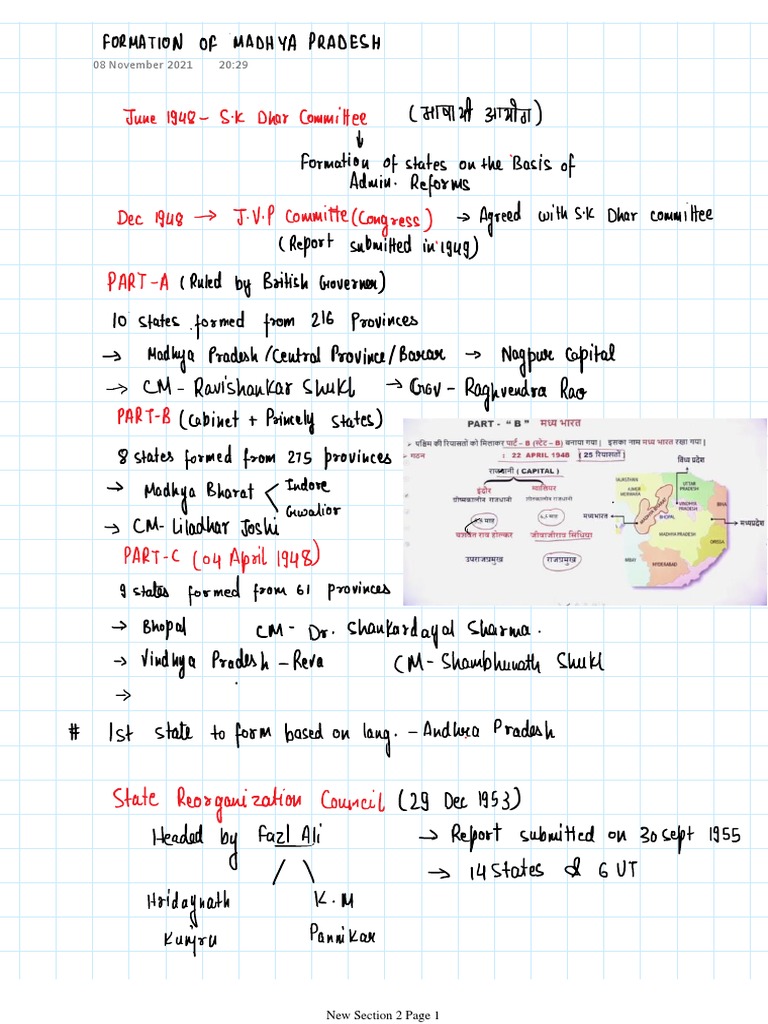 FORMATION OF MADHYA PRADESH
08 November 2021 20:29
June 1948 - S.K Dhar Committee (भाषायी आयोग)
Formation of states on the Basis of
Admin. Reforms
Dec 1948 → J.V.P Committe (Congress) → Agreed with S.K Dhar committee
(Report submitted in 1949)
PART-A (Ruled by British Governer)
10 states formed from 216 Provinces
→ Madhya Pradesh/Central Province/Barar → Nagpur Capital
→ CM - Ravishankar Shukl → Gov - Raghvendra Rao
PART-B (Cabinet + Princely States)
PART - "B" मध्य भारत
पश्चिम की रियासतों को मिलाकर पार्ट - B (स्टेट - B) बनाया गया | इसका नाम मध्य भारत रखा गया |
गठन : 22 APRIL 1948 (25 रियासतों)
विंध्य प्रदेश
राजधानी (CAPITAL)
इंदौर ग्वालियर
ग्रीष्मकालीन राजधानी शीतकालीन राजधानी
6.5 माह मध्यभारत
यशवंत राव होल्कर जीवाजीराव सिंधिया
उपराजप्रमुख राजप्रमुख
RAJASTHAN
UTTAR
PRADESH
VINDHYA
PRADESH
BIHAR
MADHYA BHARAT
BHOPAL
मध्यप्रदेश
MADHYA PRADESH
ORISSA
HYDERABAD
8 states formed from 275 provinces
→ Madhya Bharat < Indore
Gwalior
→ CM - Liladhar Joshi
PART-C (04 April 1948)
9 states formed from 61 provinces
→ Bhopal CM - Dr. Shankardayal Sharma.
→ Vindhya Pradesh - Reva CM - Shambhunath Shukl
→
# 1st state to form based on lang. - Andhra Pradesh
State Reorganization Council (29 Dec 1953)
Headed by Fazl Ali → Report submitted on 30 sept 1955
→ 14 States & 6 UT
Hridaynath K.M
Kunjru Pannikar
New Section 2 Page 1